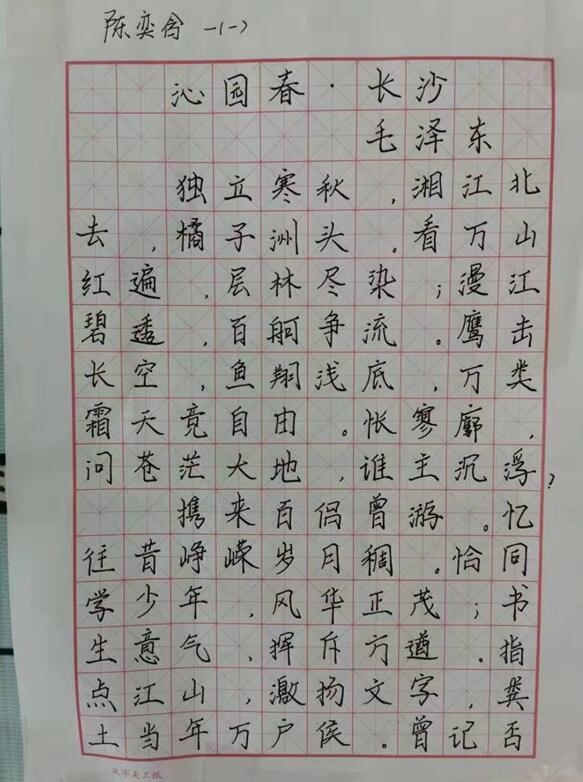 陈奕含 一(一)
沁园春·长沙
毛泽东
独立寒秋,湘江北
去,橘子洲头。看万山
红遍,层林尽染;漫江
碧透,百舸争流。鹰击
长空,鱼翔浅底,万类
霜天竞自由。怅寥廓,
问苍茫大地,谁主沉浮?
携来百侣曾游。忆
往昔峥嵘岁月稠。恰同
学少年,风华正茂;书
生意气,挥斥方遒。指
点江山,激扬文字,粪
土当年万户侯。曾记否